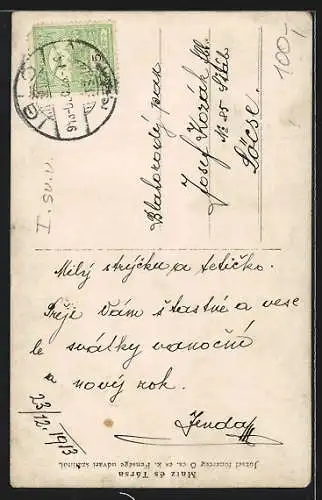 100,-
I. sv. v.
Blahorodý pan
Josef Korák
№ 85
Lócse.
Milý strýčku a tetičko.
Přeji Vám šťastné a vese
lé svátky vánoční
a nový rok.
Jenda
23/12. 1913
Maiz és Társa
József főherceg Ő cs. és k. Fensége udvari szállítói.